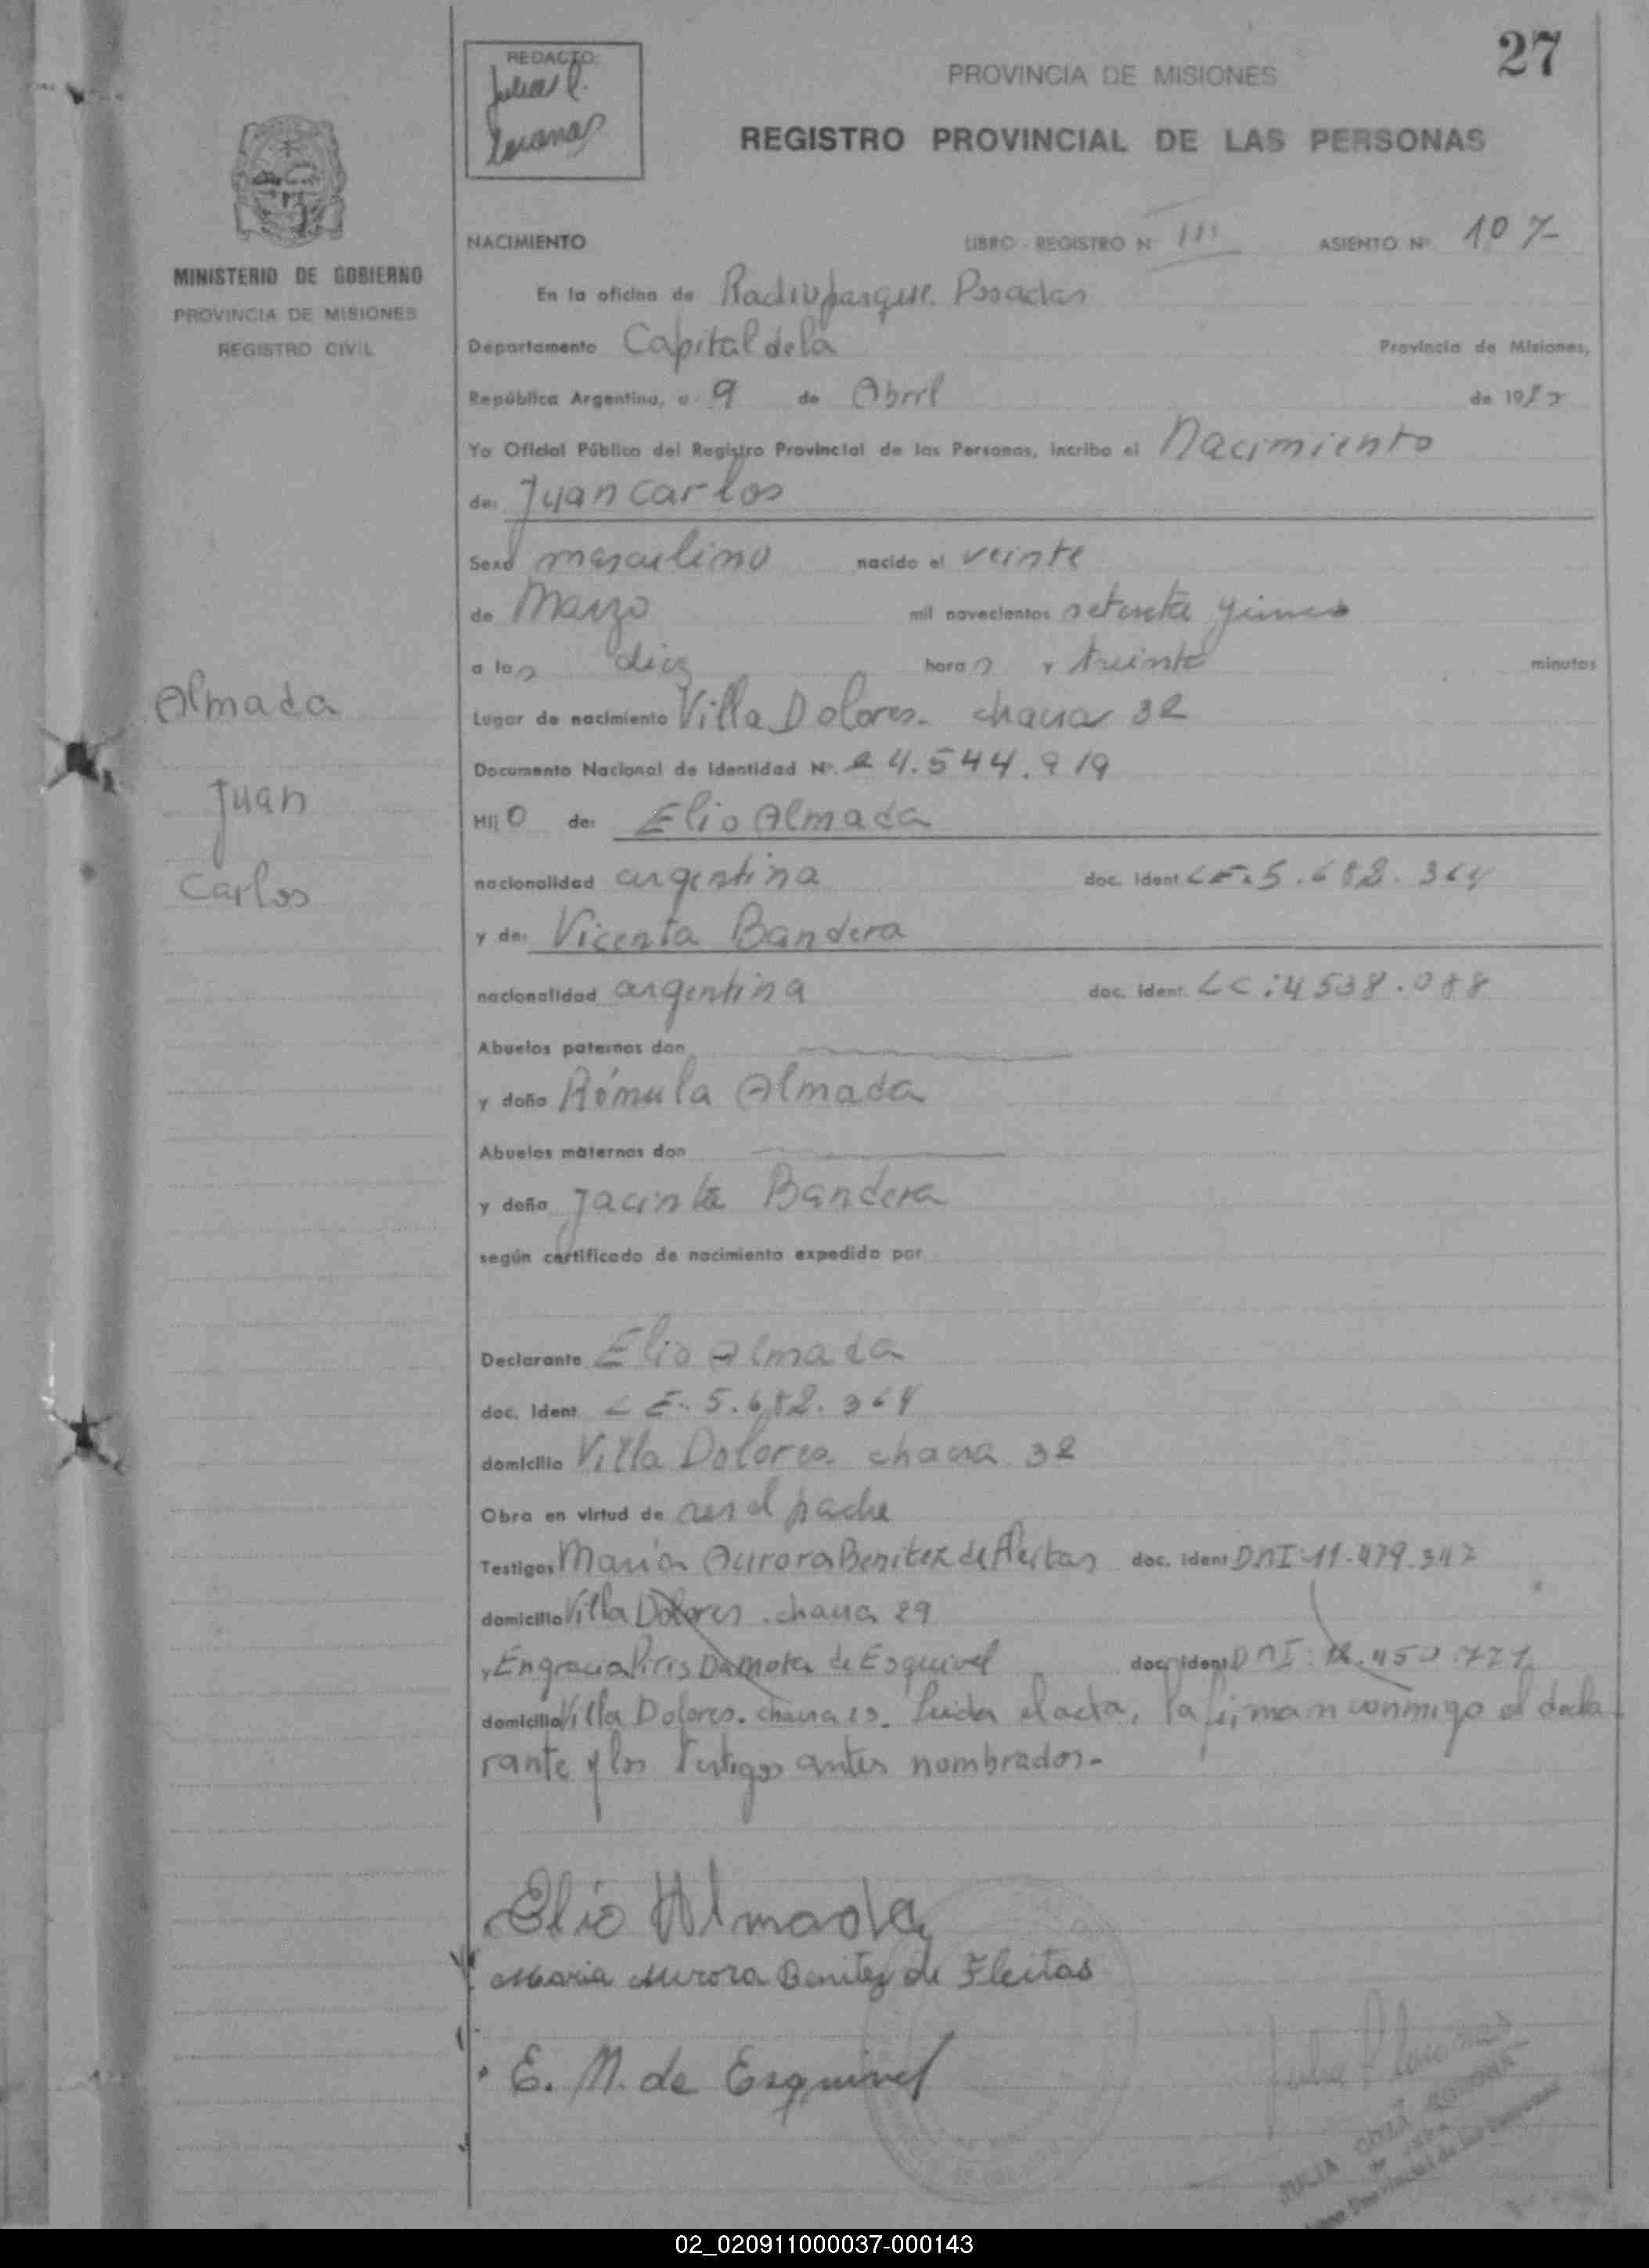 27
REDACTO:
PROVINCIA DE MISIONES
REGISTRO PROVINCIAL DE LAS PERSONAS
MINISTERIO DE GOBIERNO
PROVINCIA DE MISIONES
REGISTRO CIVIL
NACIMIENTO LIBRO - REGISTRO N III ASIENTO Nº 107
En la oficina de Radioparque. Posadas
Departamento Capital de la Provincia de Misiones,
República Argentina, a 9 de Abril de 19
Yo Oficial Público del Registro Provincial de las Personas, incribo el Nacimiento
de: Juan Carlos
Sexo masculino nacido el veinte
de Marzo mil novecientos setenta
a las diez horas y treinta minutos
Almada
Juan
Carlos
Lugar de nacimiento Villa Dolores. chacra 32
Documento Nacional de Identidad Nº. 24.544.919
Hijo de: Elio Almada
nacionalidad argentina doc. Ident LE. 5.682.364
y de: Vicenta Bandera
nacionalidad argentina doc. Ident. LC: 4538.088
Abuelos paternos don
y doña Rómula Almada
Abuelos maternos don
y doña Jacinta Bandera
según certificado de nacimiento expedido por
Declarante Elio Almada
doc. Ident LE. 5.682.364
domicilio Villa Dolores. chacra 32
Obra en virtud de ser el padre
Testigos María Aurora Benitez de Fleitas doc. Ident DNI 11.479.347
domicilio Villa Dolores. chacra 29
y Engracia Piris Da Mota de Esquivel doc. Ident DNI:
domicilio Villa Dolores. chacra Leida el acta, la firman conmigo el decla-
rante y los testigos antes nombrados-
Elio Almada
Maria Aurora Benitez de Fleitas
E. M. de Esquivel
JULIA
02_020911000037-000143